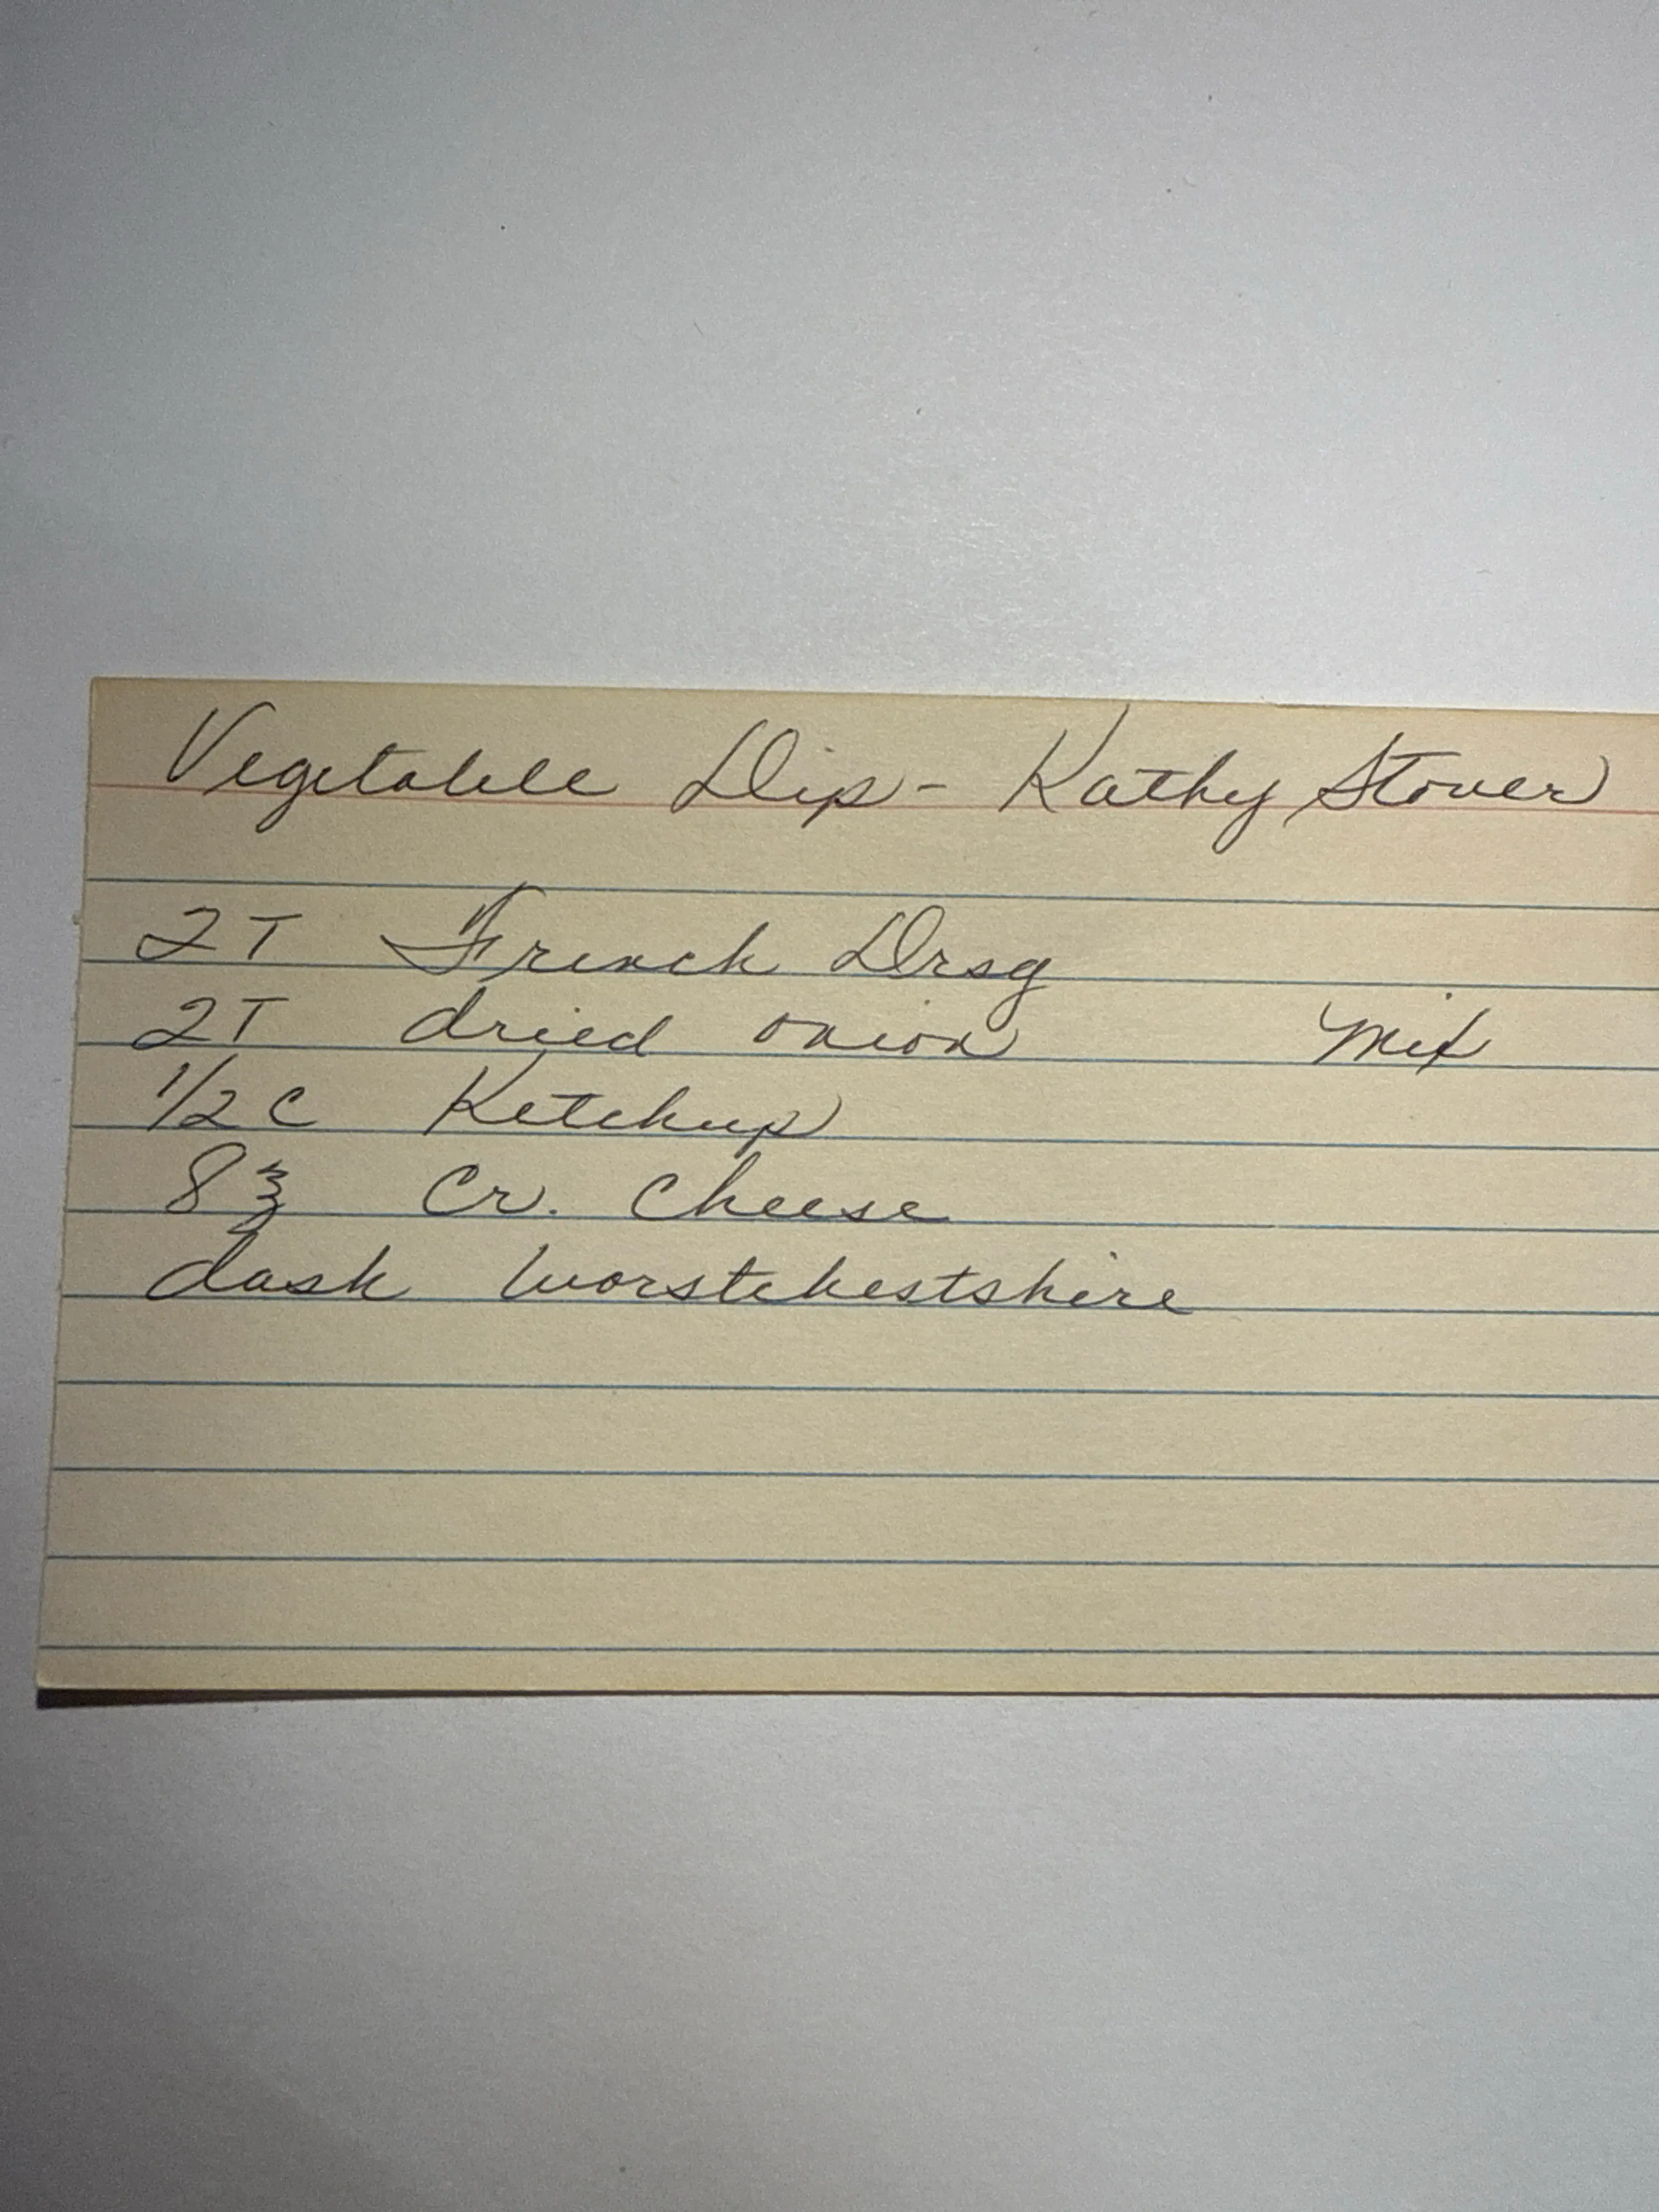 Vegetable Dip - Kathy Stover
2 T French Drsg
2 T dried onion Mix
1/2 C Ketchup
8 ℥ Cr. Cheese
dash Worstehestshire